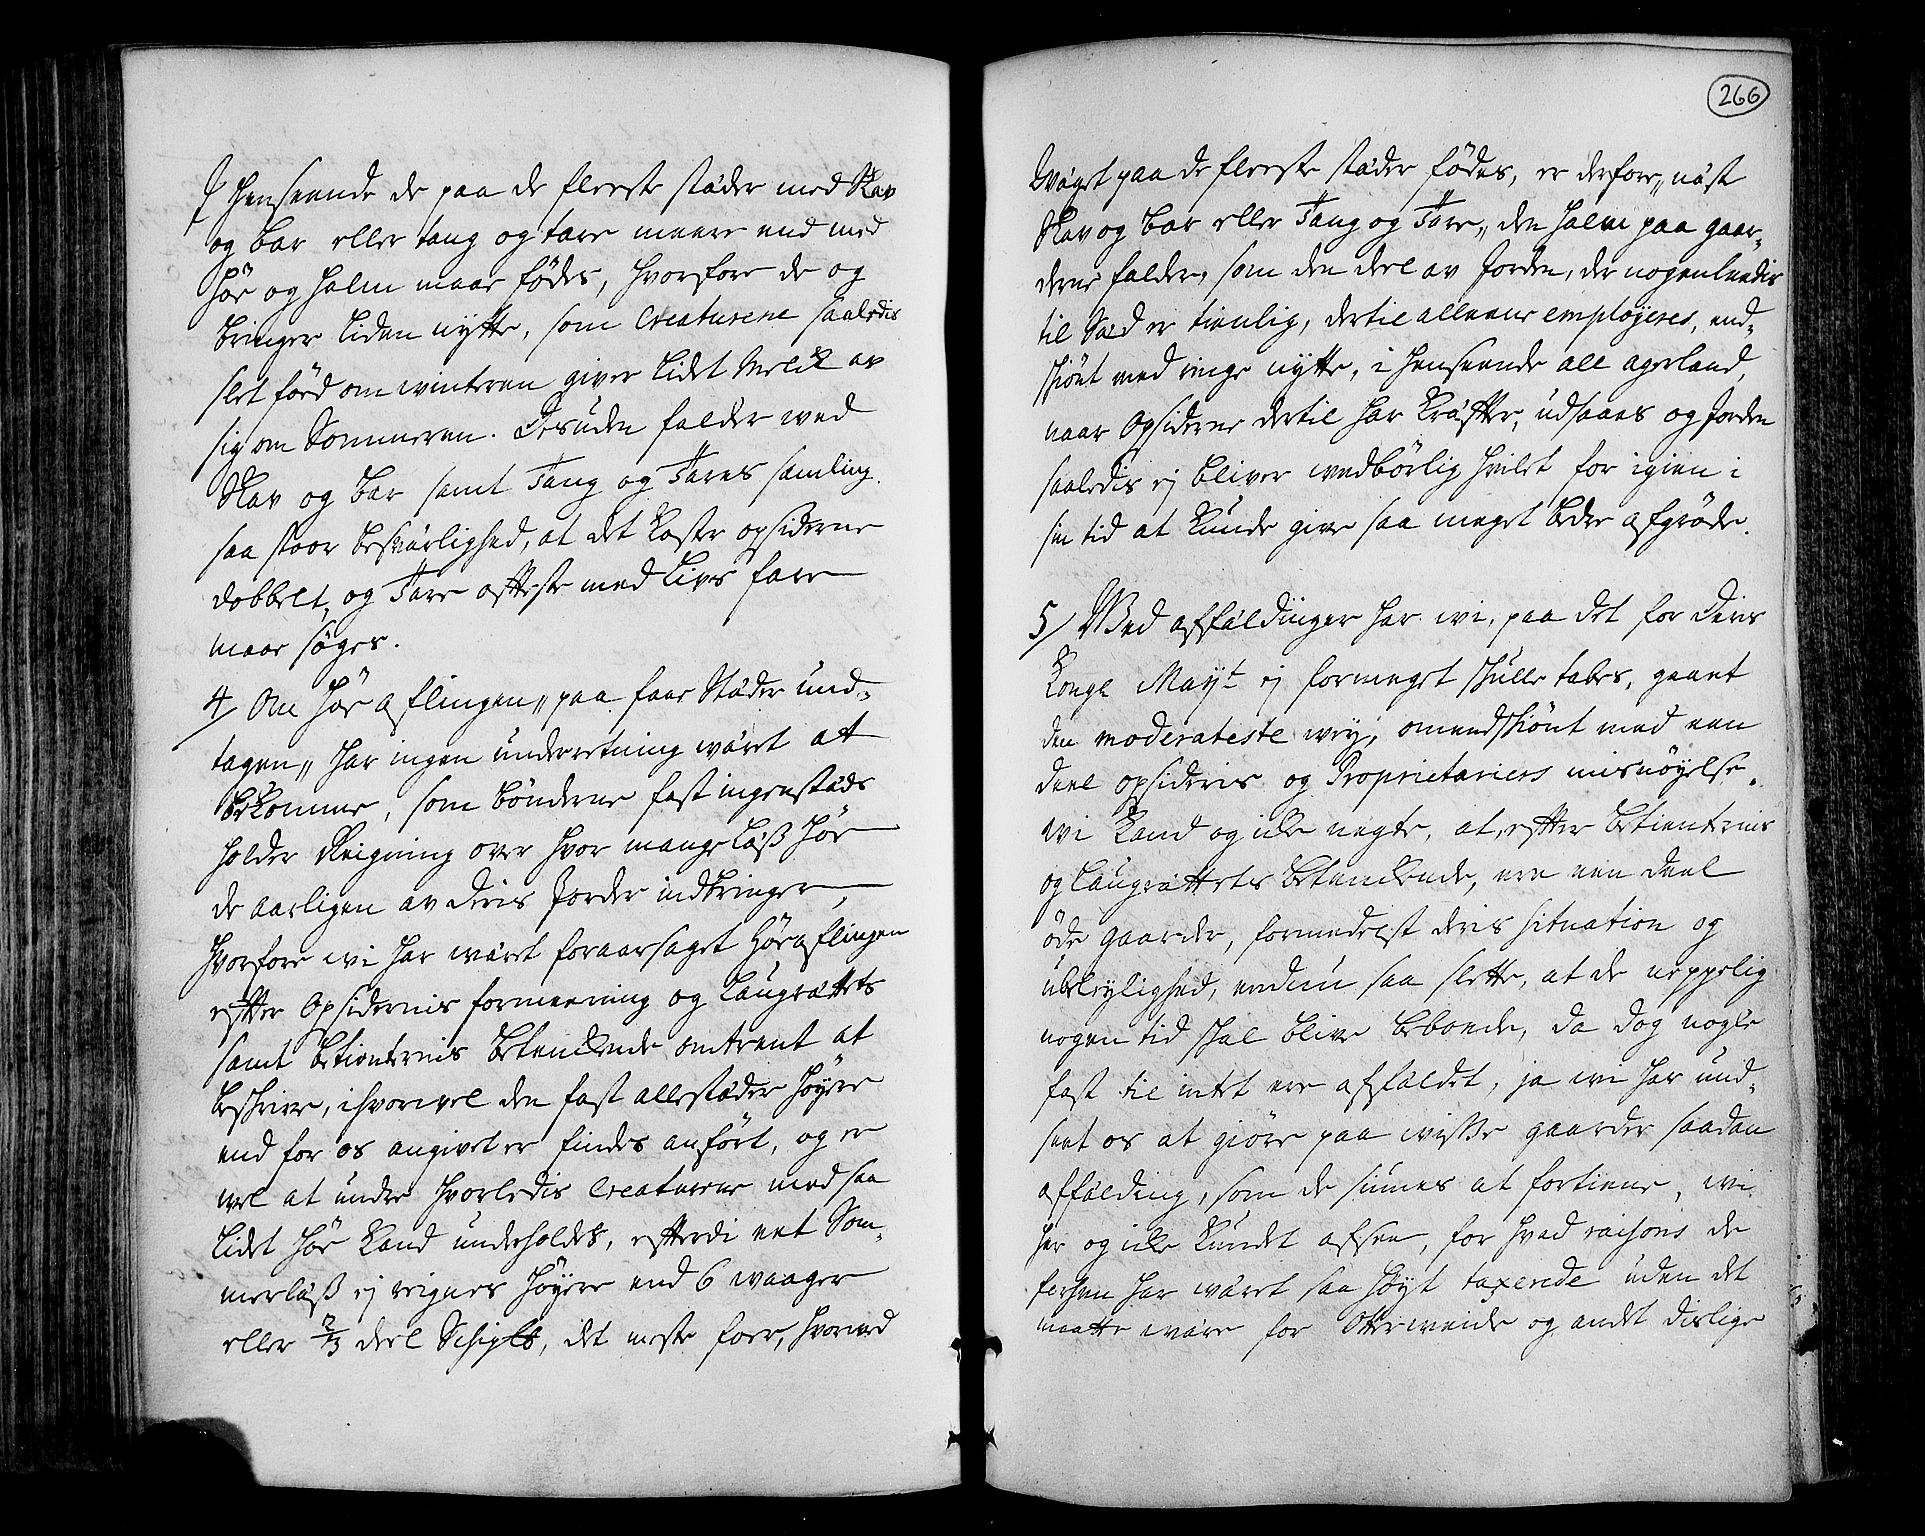 I henseende de paa de fleeste stæder med Skav
og bar eller tang og tare meere end med
höe og halm maae fødes, hvorfore de og
bringer liden nytte, som Creaturene saaledis
slet föed om winteren giver lidet Melck av
sig om Sommeren. Desuden falder ved
Skav og bar samt Tang og Tares samling
saa stoor besværlighed, at det koster opsiderne
dobbelt, og Tare offteste med Livs fare
maae søges.
4/ Om Höe aflingen,, paa faae Stæder und-
tagen,, har ingen underretning wæret at
bekomme, som bönderne fast ingenstæds
holder Reigning over hvor mange læß höe
de aarligen av deris Jorder indbringer,
hvorfore wi har wæret foraarsaget Höeaflingen
effter opsidernis formeening og Laugrættets
samt betienternis betenckende omtrent at
beskrive, ihvorvel den fast allestæder høyere
end for os angivet er findes anført, og er
vel at undre hvorledis Creaturene med saa
lidet höe kand underholdes, efftersdi eet Som-
merlæß ej reignes høyere end 6 waager
eller 2/3 deel Schiplb, det meste foer, hvorved
266
Qvæget paa de fleeste stæder fødes, er derfore,, næst
Skav og bar eller Tang og Tare,, den halm paa gaar-
derne falder, som den deel av Jorden, der nogenleedis
til Sæd er tienlig, dertil alleene employeres, end-
skiönt med ringe nytte, i henseende all agerland,
naar Opsiderne dertil har kræffter, udsaaes og Jorden
saaledis ej bliver wedbörlig hvilet for igien i
sin tid at kunde give saa meget bedre afgröde.
5/ Wed affældinger har wi, paa det for Deris
Kongl May:t ej formeget skulle tabes, gaaet
den moderateste vej, omendskiönt med een
deel opsideris og Proprietariers misnöyelse.
wi kand og icke negte, at, effter betienternis
og Laugrættetes betenckende, ere een deel
öde gaarder, formedelst deris situation og
ubeleylighed, endnu saa slette, at de neppelig
nogen tid skal blive beboede, da dog nogle
fast til intet ere affældet, ja wi har und-
seet os at giöre paa wiße gaarder saadan
affælding, som de siunes at fortiene, wi
har og icke kundet affsee, for hvad raisons de
forhen har wæret saa høyt taxerede uden det
maatte wære for Otterweide og andet dislige